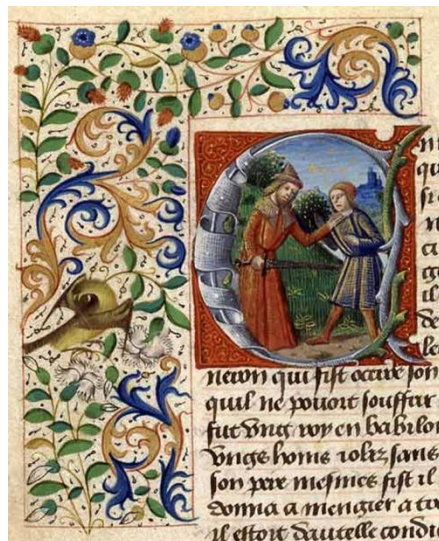 qu
il
de
le
neron qui fist occire son
quil ne povoit souffrir
fut vng roy en babilon
vngs homs ioliz sans
son pere mesmes fist il
donna a mengier a
il estoit dautelle condi